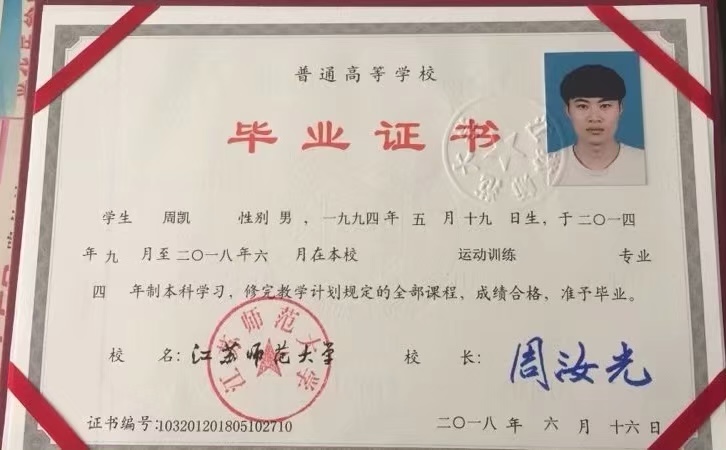 普通高等学校
毕业证书
学生 周凯 性别 男，一九九四年 五 月 十九 日生，于二〇一四
年 九 月至二〇一八年 六 月在本校 运动训练 专业
四 年制本科学习，修完教学计划规定的全部课程，成绩合格，准予毕业。
校 名：江苏师范大学 校 长：周汝光
江苏师范大学
证书编号：103201201805102710 二〇一八年 六 月 十六日